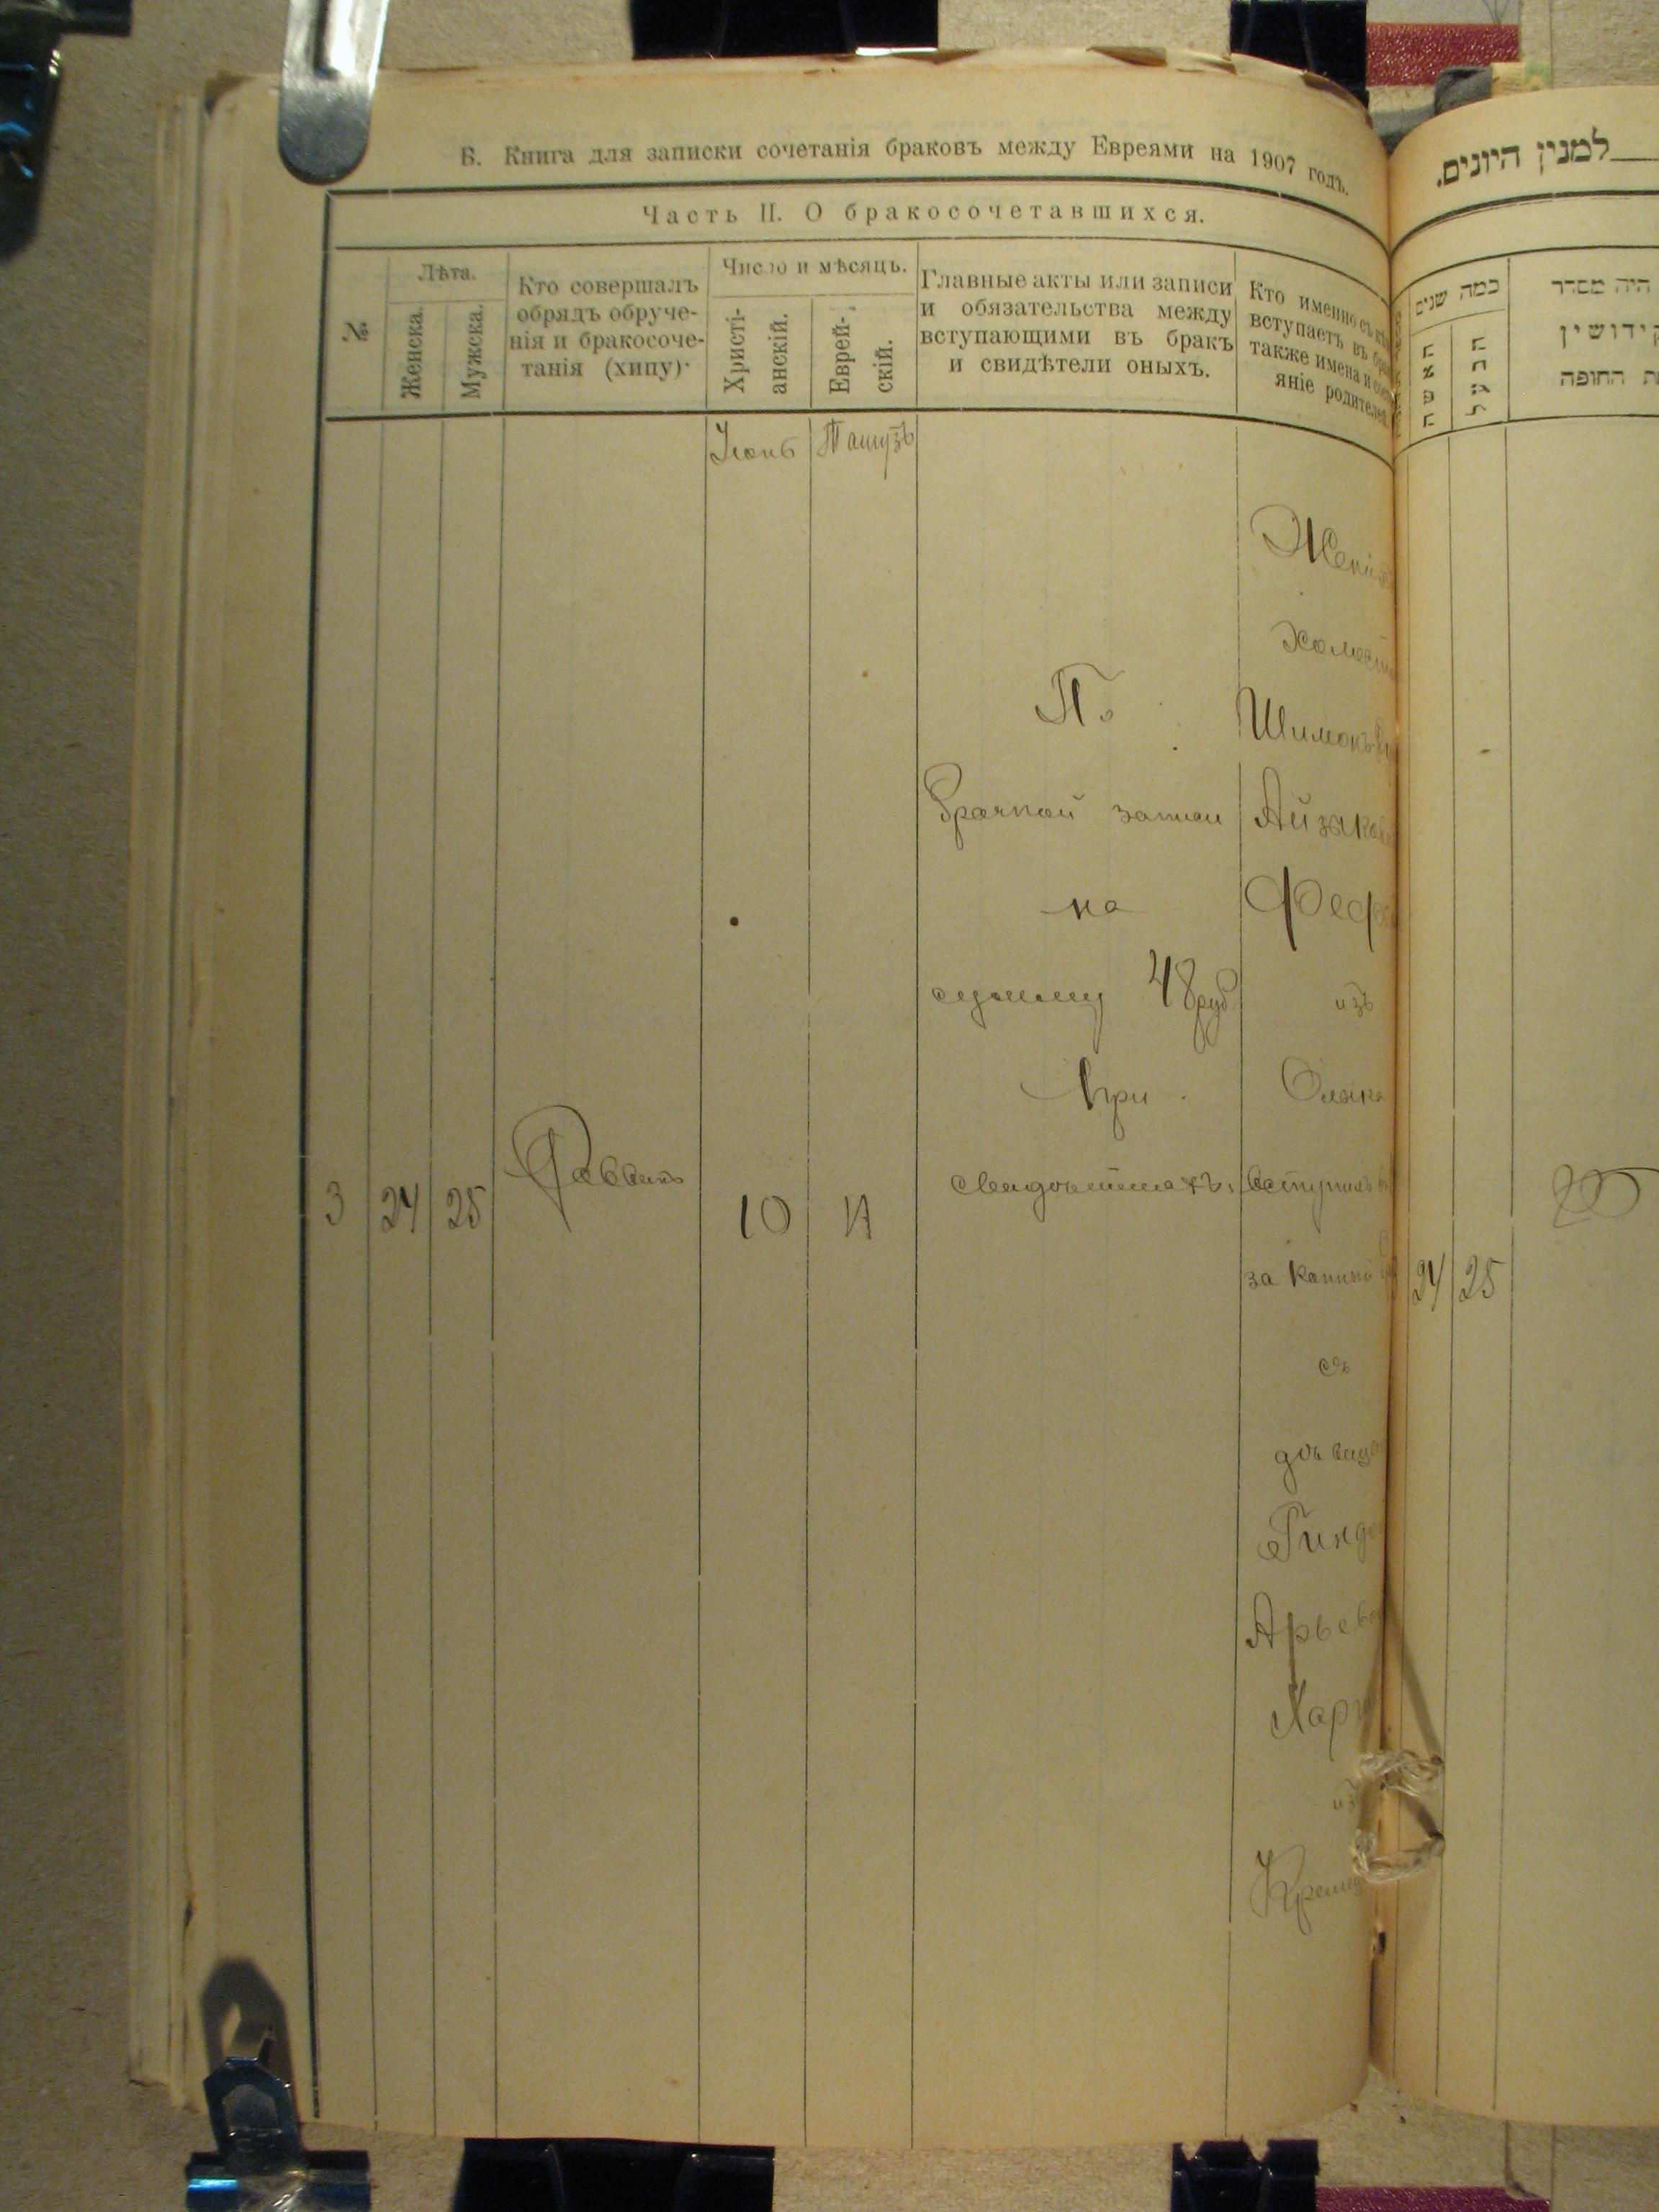 Б. Книга для записки сочетанія браковъ между Евреями на 1907 годъ.
Часть II. О бракосочетавшихся.
№
Лѣта.
Женска.
Мужска.
Кто совершалъ
обрядъ обруче-
нія и бракосоче-
танія (хипу).
Число и мѣсяцъ.
Христі-
анскій.
Еврей-
скій.
Главные акты или записи
и обязательства между
вступающими въ бракъ
и свидѣтели оныхъ.
Кто именно съ кѣмъ
вступаетъ въ бракъ
также имена и состо-
яніе родителей
Іюнь
Тамузъ
3
24
25
Раввинъ
10
11
По
брачной записи
на
сумму 48 руб
при
свидѣтеляхъ
Жени
холост
Шимонъ
Айзыков
Фе
изъ
вступилъ
за
съ
дѣвиц
Гинд
Арьев
Хар
изъ
Креме
למנין היונים.
כמה שנים
האשה
הבעל
היה מסדר
קידושין
ת החופה
24
25